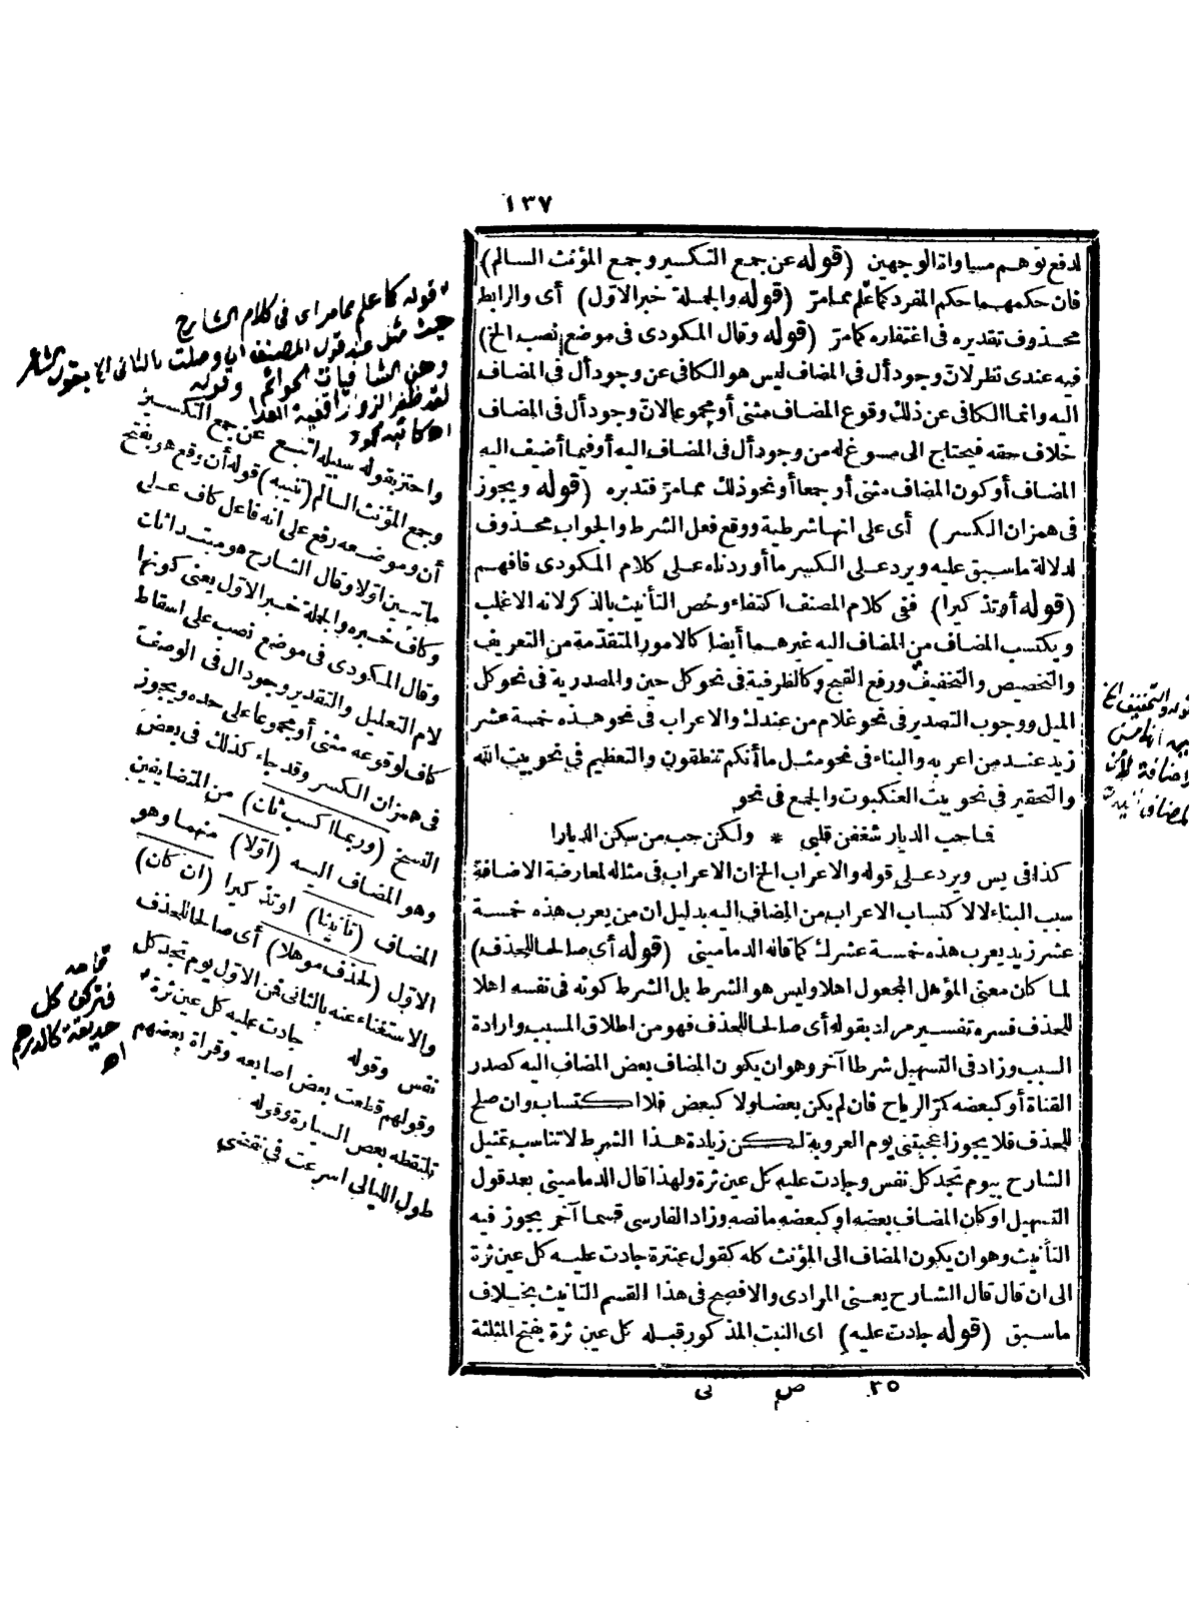 ١٣٧
لدفع توهم مساواة الوجهين (قوله عن جمع التكسير وجمع المؤنث السالم)
فان حكمهما حكم المفرد كما علم ممامرّ (قوله والجملة خبر الاوّل) أى والرابط
محذوف تقديره فى اغتفاره كمامرّ (قوله وقال المكودى فى موضع نصب الخ)
فيه عندى نظر لانّ وجود أل فى المضاف ليس هو الكافى عن وجود أل فى المضاف
اليه وانما الكافى عن ذلك وقوع المضاف مثنى أو مجموعا لانّ وجود أل فى المضاف
خلاف حقه فيحتاج الى مسوغ له من وجود أل فى المضاف اليه أو فيما أضيف اليه
المضاف أو كون المضاف مثنى أو جمعا أو نحو ذلك ممامرّ فتدبره (قوله ويجوز
فى همز ان الكسر) أى على انها شرطية ووقع فعل الشرط والجواب محذوف
لدلالة ماسبق عليه ويرد على الكسر ما أوردناه على كلام المكودى فافهم
(قوله أو تذكيرا) ففى كلام المصنف اكتفاء وخص التأنيث بالذكر لانه الاغلب
ويكتسب المضاف من المضاف اليه غيرهما أيضا كالامور المتقدّمة من التعريف
والتخصيص والتخفيف ورفع القبح وكالظرفية فى نحو كل حين والمصدرية فى نحو كل
الميل ووجوب التصدير فى نحو غلام من عندك والاعراب فى نحو هذه خمسة عشر
زيد عند من اعربه والبناء فى نحو مثل ما أنكم تنطقون والتعظيم فى نحو بيت الله
والتحقير فى نحو بيت العنكبوت والجمع فى نحو
فما حب الديار شغفن قلبى * ولكن حب من سكن الديارا
كذا فى يس ويرد على قوله والاعراب الخ ان الاعراب فى مثاله لمعارضة الاضافة
سبب البناء لا لاكتساب الاعراب من المضاف اليه بدليل ان من يعرب هذه خمسة
عشر زيد يعرب هذه خمسة عشرك كما قاله الدمامينى (قوله أى صالحا للحذف)
لما كان معنى المؤهل المجعول اهلا وليس هو الشرط بل الشرط كونه فى نفسه اهلا
للحذف فسره تفسير مراد بقوله أى صالحا للحذف فهو من اطلاق المسبب وارادة
السبب وزاد فى التسهيل شرطا آخر وهو ان يكون المضاف بعض المضاف اليه كصدر
القناة أو كبعضه كمرّ الرياح فان لم يكن بعضا ولا كبعض فلا اكتساب وان صلح
للحذف فلا يجوز اعجبتنى يوم العروبة لكن زيادة هذا الشرط لا تناسب تمثيل
الشارح بيوم تجد كل نفس وجادت عليه كل عين ثرة ولهذا قال الدمامينى بعد قول
التسهيل او كان المضاف بعضه او كبعضه مانصه وزاد الفارسى قسما آخر يجوز فيه
التأنيث وهو ان يكون المضاف الى المؤنث كله كقول عنترة جادت عليه كل عين ثرة
الى ان قال قال الشارح يعنى المرادى والافصح فى هذا القسم التانيث بخلاف
ماسبق (قوله جادت عليه) اى النبت المذكور قبله كل عين ثرة بفتح المثلثة
٣٥ ص نى
قوله كما علم ممامر اى فى كلام الشارح
حيث مثل عند قول المصنف او وصلت بالثانى الخ بقول الشاعر
وهن الشافيات الحوائم وقوله
لقد ظفر الزوار أقفية العدا
اه كاتبه
واحترز بقوله سبيله اتبع عن جمع التكسير
وجمع المؤنث السالم (تنبيه) قوله أن وقع هو بفتح
أن وموضعه رفع على انه فاعل كاف على
ماتبين اوّلا وقال الشارح هو مبتدا ثان
وكاف خبره والجملة خبر الاوّل يعنى كونها
وقال المكودى فى موضع نصب على اسقاط
لام التعليل والتقدير وجود ال فى الوصف
كاف لوقوعه مثنى أو مجموعا على حده ويجوز
فى همز ان الكسر وقد جاء كذلك فى بعض
النسخ (وربما اكسب ثان) من المتضايفين
وهو المضاف اليه (اوّلا) منهما وهو
المضاف (تأنيثا) او تذكيرا (ان كان)
الاوّل (لحذف موهلا) أى صالحا للحذف
والاستغناء عنه بالثانى فمن الاوّل يوم تجد كل
نفس وقوله جادت عليه كل عين ثرة
وقولهم قطعت بعض اصابعه وقراة بعضهم
تلتقطه بعض السيارة وقوله
طول الليالى اسرعت فى نقضى
تمامه
فتركن كل
حديقة كالدرهم
اه
قوله والتخفيف الخ